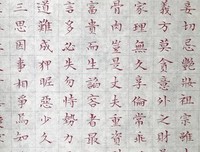 妾切忌豔妝祖宗雖
義方勿貪意外之財
家理無久享倫常乖
骨肉豈是丈夫重資
富貴而生諂容者最
言多必失勿恃勢力
道難成狎昵惡少久
三思因事相爭焉知